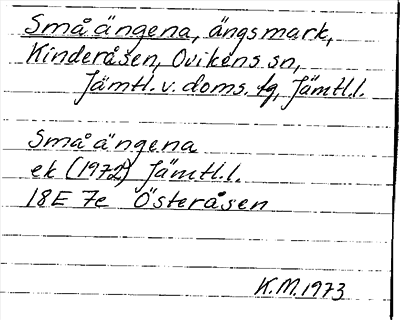 Småängena, ängsmark,
Kinderåsen, Ovikens sn,
Jämtl. v. doms. tg, Jämtl.l.
Småängena
ek (1972) Jämtl.l.
18E 7e Österåsen
K.M.1973